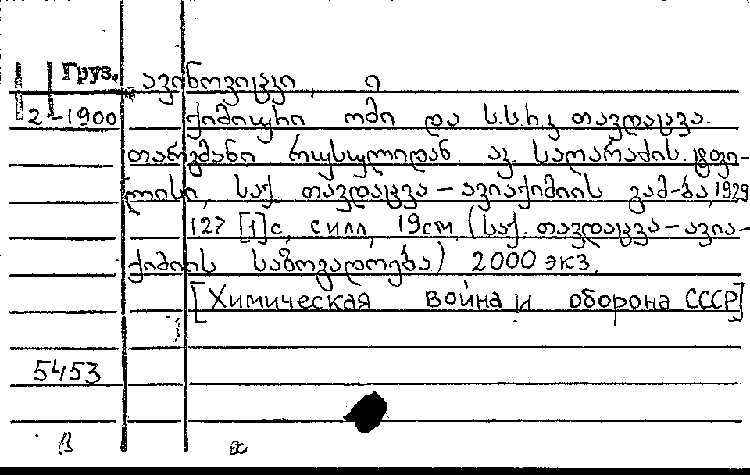 Груз. ავინოვიცკი, ი
2-1900 ქიმიური ომი და ს.ს.რ.კ თავდაცვა.
თარგმანი რუსულიდან ალ. საღარაძის. ტფი-
ლისი, საქ. თავდაცვა-ავიაქიმიის გამ-ბა, 1929
127 [1] с, с илл, 19см, (საქ. თავდაცვა-ავია-
ქიმიის საზოგადოება) 2000 экз.
[Химическая война и оборона СССР]
5453